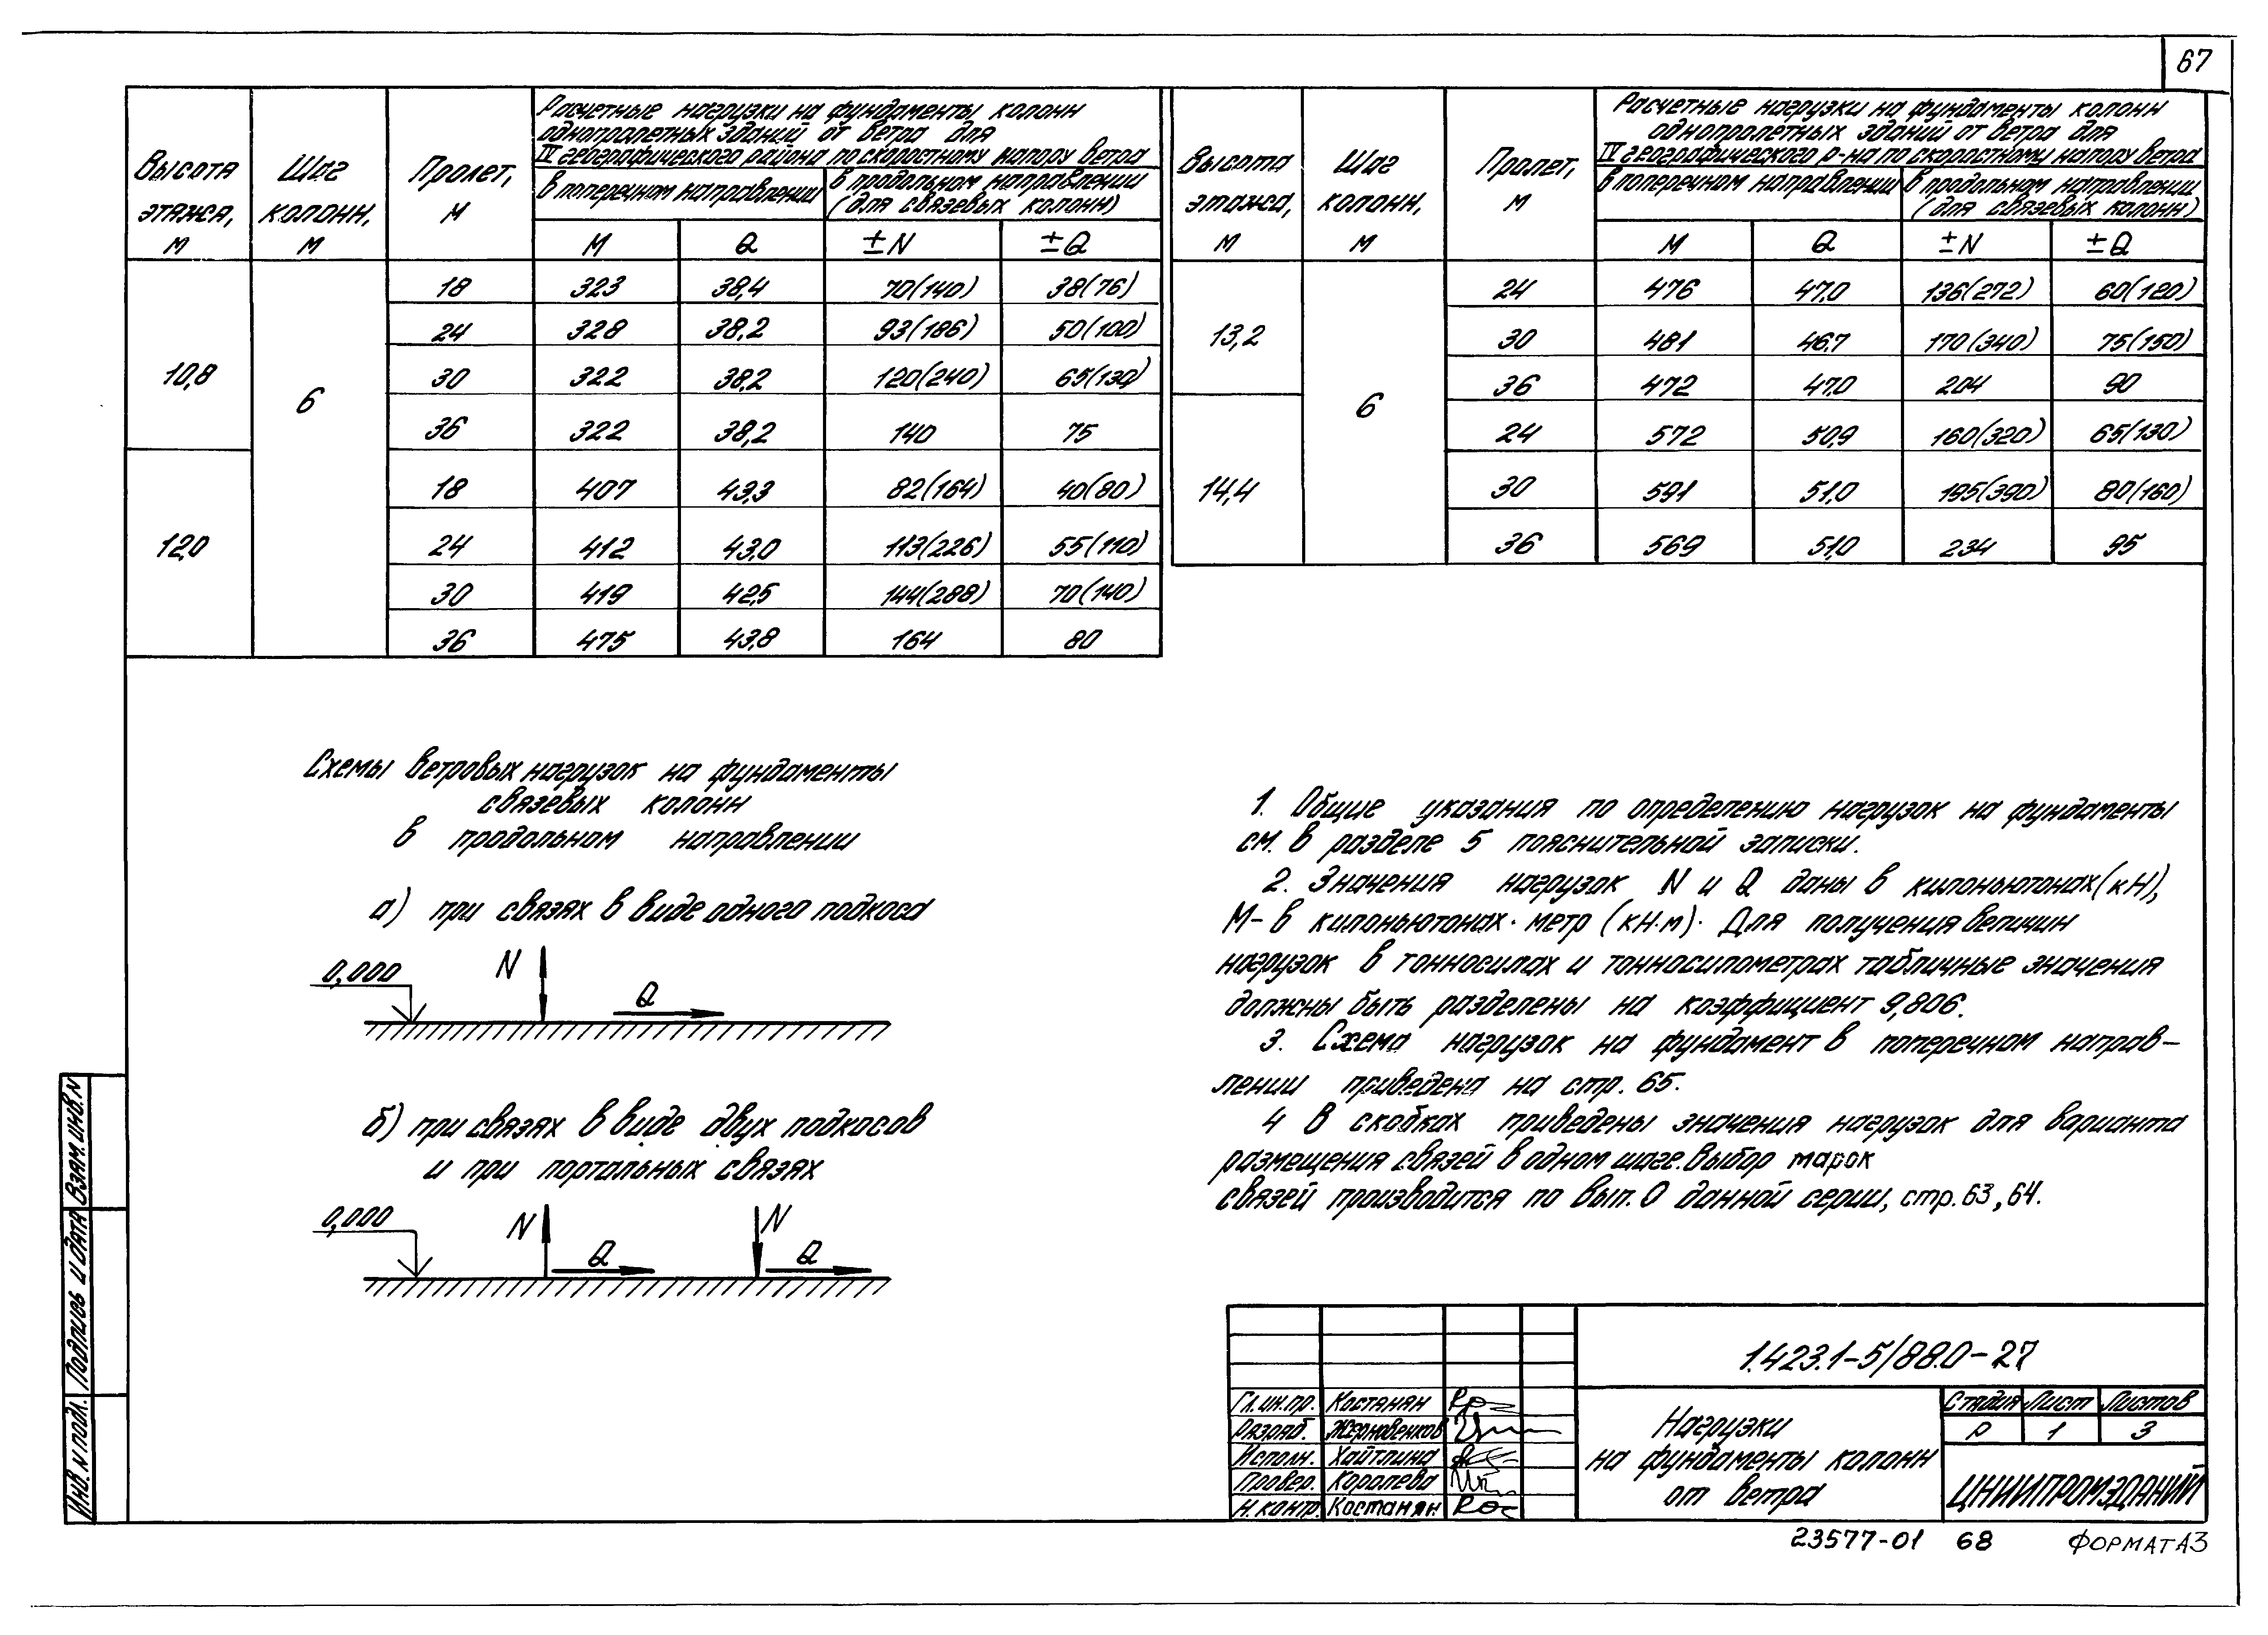 67
Высота этажа, м
Шаг колонн, м
Пролет, м
Расчетные нагрузки на фундаменты колонн
однопролетных зданий от ветра для
IV географического района по скоростному напору ветра
в поперечном направлении
в продольном направлении
(для связевых колонн)
М Q ±N ±Q
10,8 6
18 323 38,4 70(140) 38(76)
24 328 38,2 93(186) 50(100)
30 322 38,2 120(240) 65(130)
36 322 38,2 140 75
12,0
18 407 43,3 82(164) 40(80)
24 412 43,0 113(226) 55(110)
30 419 42,5 144(288) 70(140)
36 475 43,8 164 80
Высота этажа, м
Шаг колонн, м
Пролет, м
Расчетные нагрузки на фундаменты колонн
однопролетных зданий от ветра для
IV географического р-на по скоростному напору ветра
в поперечном направлении
в продольном направлении
(для связевых колонн)
М Q ±N ±Q
13,2 6
24 476 47,0 136(272) 60(120)
30 481 46,7 170(340) 75(150)
36 472 47,0 204 90
14,4
24 572 50,9 160(320) 65(130)
30 591 51,0 195(390) 80(160)
36 569 51,0 234 95
Схемы ветровых нагрузок на фундаменты
связевых колонн
в продольном направлении
а) при связях в виде одного подкоса
0,000 N Q
б) при связях в виде двух подкосов
и при портальных связях
0,000 N Q N Q
1. Общие указания по определению нагрузок на фундаменты
см. в разделе 5 пояснительной записки.
2. Значения нагрузок N и Q даны в килоньютонах(кН),
М- в килоньютонах·метр (кН·м). Для получения величин
нагрузок в тонносилах и тонносилометрах табличные значения
должны быть разделены на коэффициент 9,806.
3. Схема нагрузок на фундамент в поперечном направ-
лении приведена на стр. 65.
4 В скобках приведены значения нагрузок для варианта
размещения связей в одном шаге. Выбор марок
связей производится по вып. 0 данной серии, стр. 63, 64.
Взям. инв. N
Подпись и дата
Инв. N подл.
1.423.1-5/88.0-27
Гл. ин. пр. Костанян
Разраб. Жерновенков
Исполн. Хайтлина
Провер. Королева
Н. контр. Костанян.
Нагрузки
на фундаменты колонн
от ветра
Стадия Лист Листов
Р 1 3
ЦНИИПРОМЗДАНИЙ
23577-01 68 ФОРМАТ А3